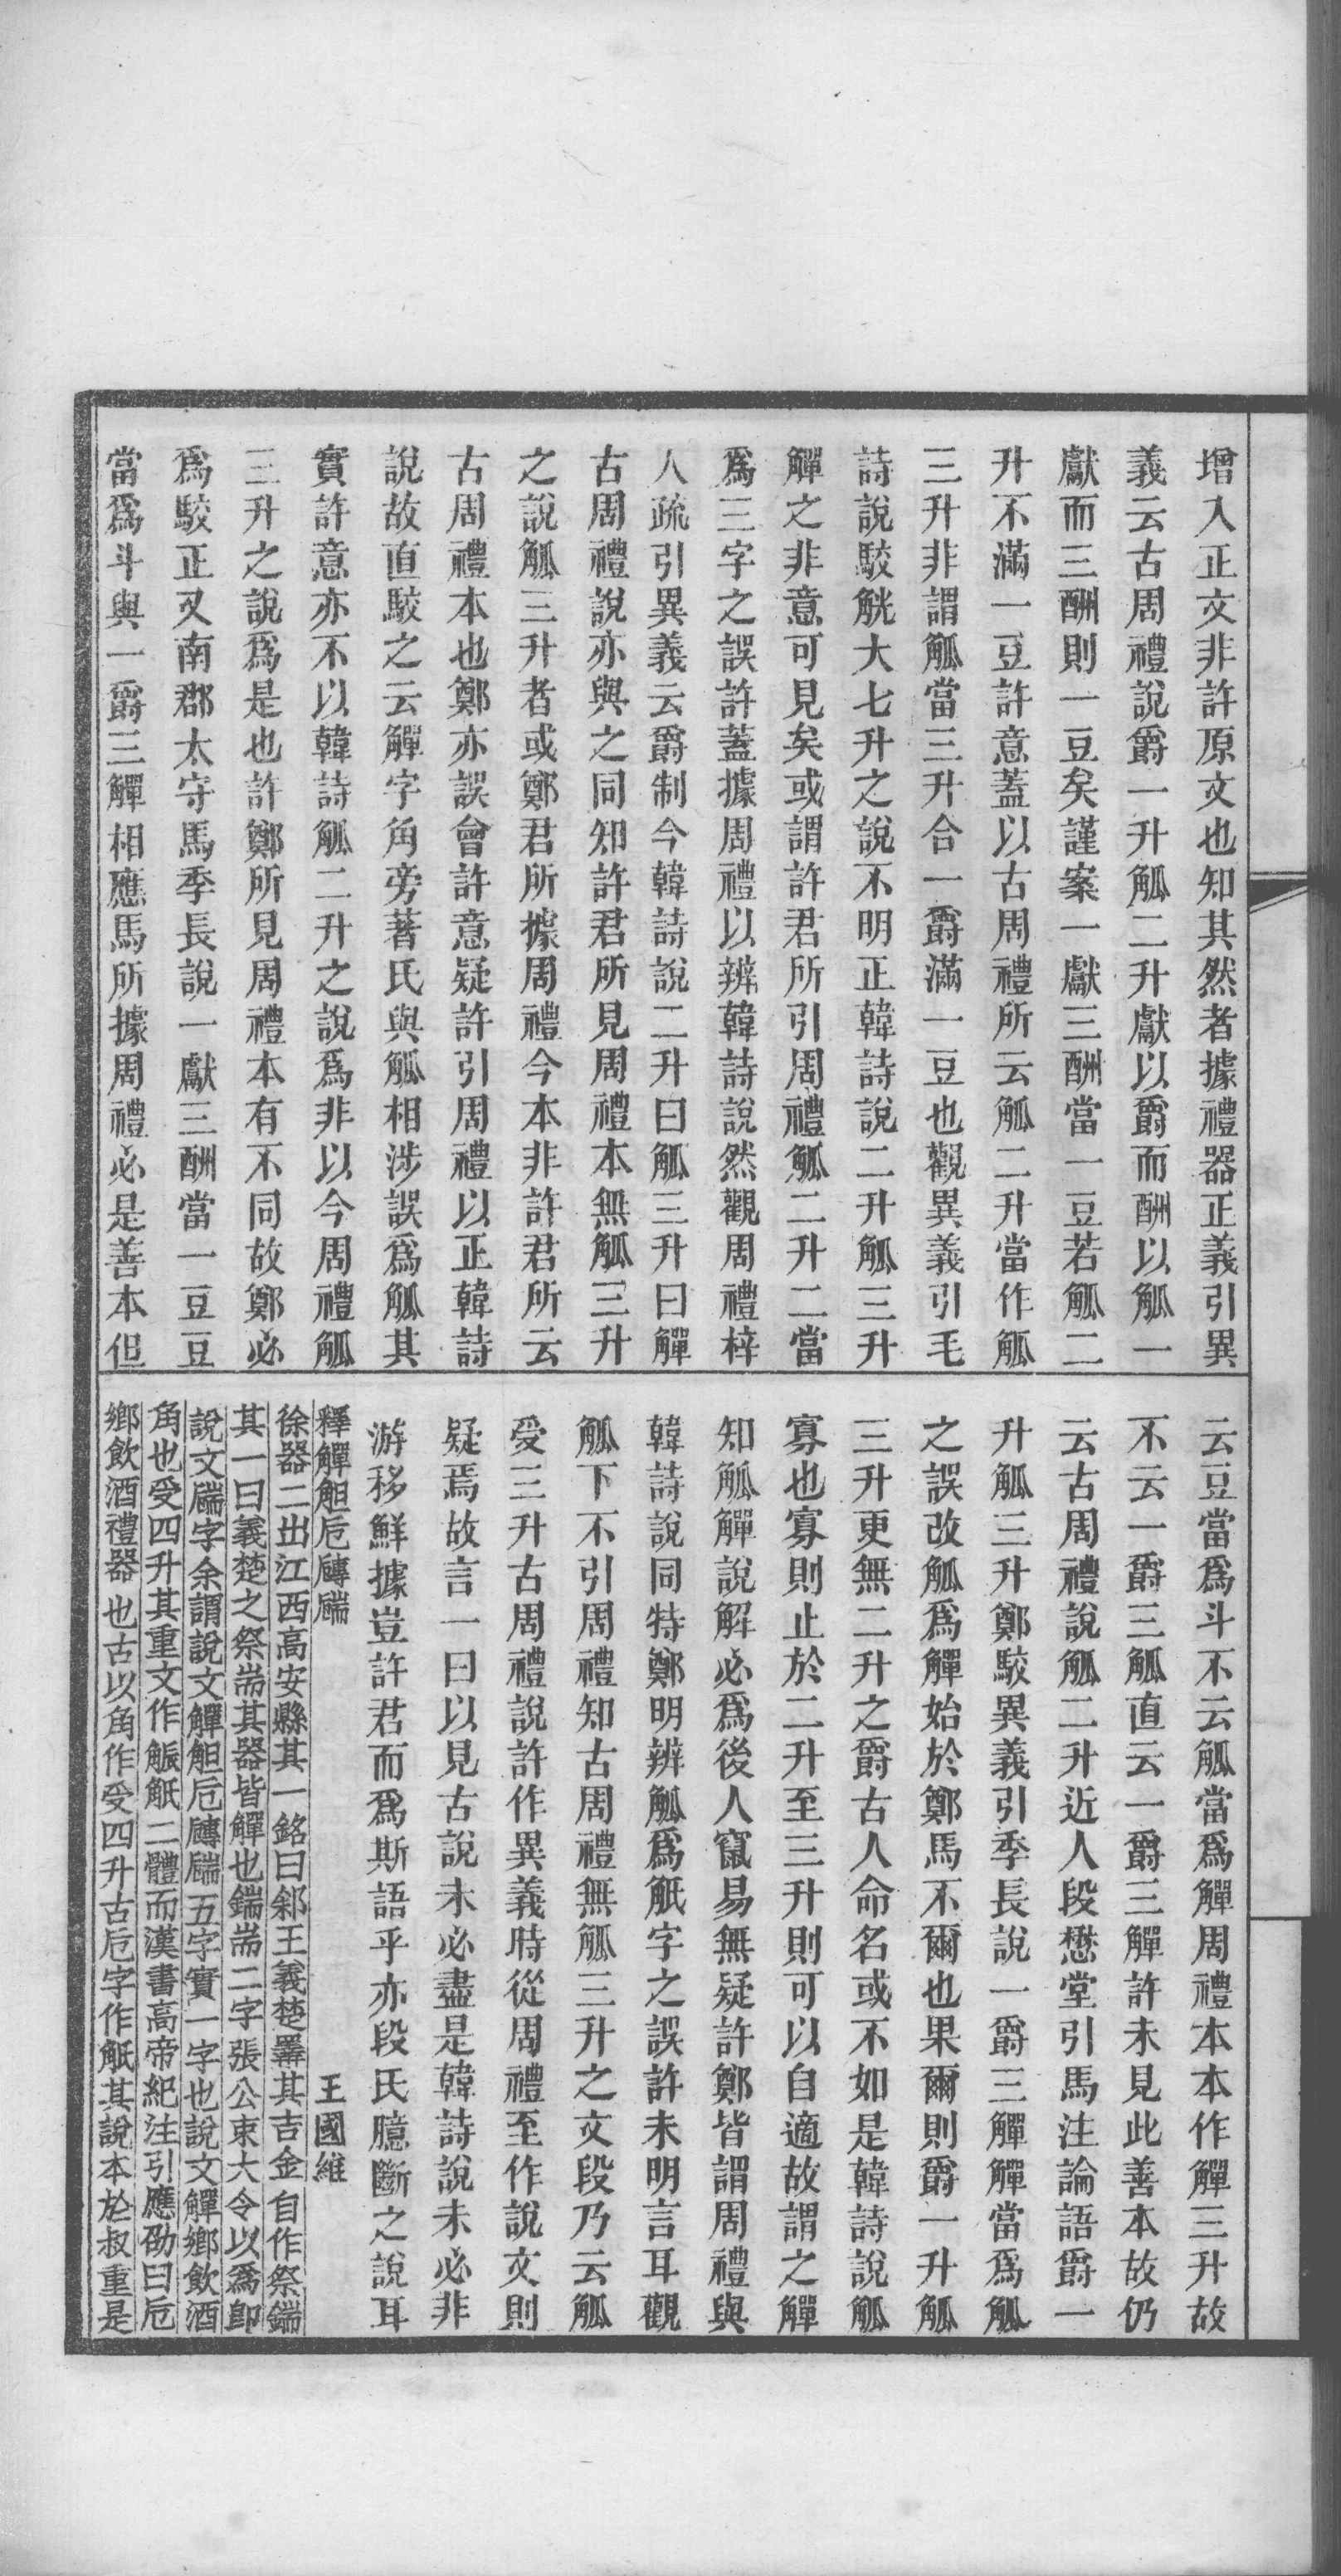 增入正文非許原文也知其然者據禮器正義引異
義云古周禮說爵一升觚二升獻以爵而酬以觚一
獻而三酬則一豆矣謹案一獻三酬當一豆若觚二
升不滿一豆許意蓋以古周禮所云觚二升當作觚
三升非謂觚當三升合一爵滿一豆也觀異義引毛
詩說駁觥大七升之說不明正韓詩說二升觚三升
觶之非意可見矣或謂許君所引周禮觚二升二當
爲三字之誤許蓋據周禮以辨韓詩說然觀周禮梓
人疏引異義云爵制今韓詩說二升曰觚三升曰觶
古周禮說亦與之同知許君所見周禮本無觚三升
之說觚三升者或鄭君所據周禮今本非許君所云
古周禮本也鄭亦誤會許意疑許引周禮以正韓詩
說故直駁之云觶字角旁著氏與觚相涉誤爲觚其
實許意亦不以韓詩觚二升之說爲非以今周禮觚
三升之說爲是也許鄭所見周禮本有不同故鄭必
爲駁正又南郡太守馬季長說一獻三酬當一豆豆
當爲斗與一爵三觶相應馬所據周禮必是善本但
云豆當爲斗不云觚當爲觶周禮本本作觶三升故
不云一爵三觚直云一爵三觶許未見此善本故仍
云古周禮說觚二升近人段懋堂引馬注論語爵一
升觚三升鄭駁異義引季長說一爵三觶觶當爲觚
之誤改觚爲觶始於鄭馬不爾也果爾則爵一升觚
三升更無二升之爵古人命名或不如是韓詩說觚
寡也寡則止於二升至三升則可以自適故謂之觶
知觚觶說解必爲後人竄易無疑許鄭皆謂周禮與
韓詩說同特鄭明辨觚爲觗字之誤許未明言耳觀
觚下不引周禮知古周禮無觚三升之文段乃云觚
受三升古周禮說許作異義時從周禮至作說文則
疑焉故言一曰以見古說未必盡是韓詩說未必非
游移鮮據豈許君而爲斯語乎亦段氏臆斷之說耳
釋觶觛卮𦓝𦓔　王國維
徐器二出江西高安縣其一銘曰䣄王義楚擇其吉金自作祭鍴
其一曰義楚之祭耑其器皆觶也鍴耑二字張公束大令以爲卽
說文𦓔字余謂說文觶觛卮𦓝𦓔五字實一字也說文觶鄉飲酒
角也受四升其重文作䚨觗二體而漢書高帝紀注引應劭曰卮
鄉飲酒禮器也古以角作受四升古卮字作觗其說本於叔重是